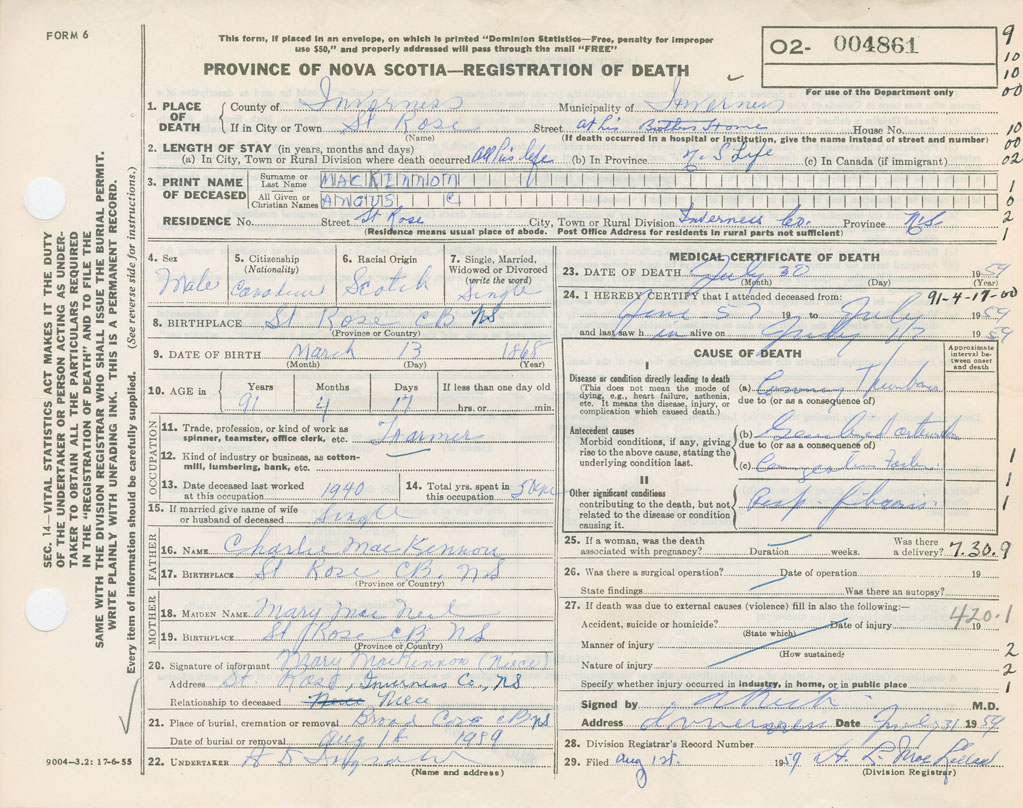 FORM 6
This form, if placed in an envelope, on which is printed "Dominion Statistics—Free, penalty for improper
use $50," and properly addressed will pass through the mail "FREE"
PROVINCE OF NOVA SCOTIA—REGISTRATION OF DEATH
O2- 004861
For use of the Department only
9
10
10
00
10
00
02
1
0
2
1
SEC. 14—VITAL STATISTICS ACT MAKES IT THE DUTY
OF THE UNDERTAKER OR PERSON ACTING AS UNDER-
TAKER TO OBTAIN ALL THE PARTICULARS REQUIRED
IN THE "REGISTRATION OF DEATH" AND TO FILE THE
SAME WITH THE DIVISION REGISTRAR WHO SHALL ISSUE THE BURIAL PERMIT.
WRITE PLAINLY WITH UNFADING INK. THIS IS A PERMANENT RECORD.
Every item of information should be carefully supplied. (See reverse side for instructions.)
1. PLACE OF DEATH County of Inverness Municipality of Inverness
If in City or Town St Rose Street at his Brothers Home House No.
(Name) (If death occurred in a hospital or institution, give the name instead of street and number)
2. LENGTH OF STAY (in years, months and days)
(a) In City, Town or Rural Division where death occurred All his life (b) In Province N.S Life (c) In Canada (if immigrant)
3. PRINT NAME OF DECEASED Surname or Last Name MACKINNON
All Given or Christian Names ANGUS C
RESIDENCE No. Street St Rose City, Town or Rural Division Inverness Co. Province N.S.
(Residence means usual place of abode. Post Office Address for residents in rural parts not sufficient)
4. Sex Male
5. Citizenship (Nationality) Canadian
6. Racial Origin Scotch
7. Single, Married, Widowed or Divorced (write the word) Single
8. BIRTHPLACE St Rose CB NS
(Province or Country)
9. DATE OF BIRTH March 13 1868
(Month) (Day) (Year)
10. AGE in Years 91 Months 4 Days 17 If less than one day old hrs. or min.
OCCUPATION
11. Trade, profession, or kind of work as spinner, teamster, office clerk, etc. Farmer
12. Kind of industry or business, as cotton-mill, lumbering, bank, etc.
13. Date deceased last worked at this occupation 1940
14. Total yrs. spent in this occupation
15. If married give name of wife or husband of deceased Single
FATHER
16. NAME Charlie MacKinnon
17. BIRTHPLACE St Rose CB. N.S
(Province or Country)
MOTHER
18. MAIDEN NAME Mary Mac Neil
19. BIRTHPLACE St Rose CB NS
(Province or Country)
20. Signature of informant Mary MacKinnon (Niece)
Address St Rose, Inverness Co., NS
Relationship to deceased Niece
21. Place of burial, cremation or removal Broad Cove CB NS
Date of burial or removal Aug 1st 1959
22. UNDERTAKER
(Name and address)
9004—3.2: 17-6-55
MEDICAL CERTIFICATE OF DEATH
23. DATE OF DEATH July 30 1959
(Month) (Day) (Year)
91-4-17-00
24. I HEREBY CERTIFY that I attended deceased from:
June 57 19 to July 1959
and last saw h im alive on July 17 1959
CAUSE OF DEATH
Approximate interval between onset and death
I
Disease or condition directly leading to death
(This does not mean the mode of dying, e.g., heart failure, asthenia, etc. It means the disease, injury, or complication which caused death.)
(a) Coronary Thrombosis
due to (or as a consequence of)
Antecedent causes
Morbid conditions, if any, giving rise to the above cause, stating the underlying condition last.
(b)
due to (or as a consequence of)
(c)
II
Other significant conditions
contributing to the death, but not related to the disease or condition causing it.
fibrosis
1
1
1
25. If a woman, was the death associated with pregnancy? Duration weeks. Was there a delivery? 7.30.9
26. Was there a surgical operation? Date of operation 19
State findings Was there an autopsy?
27. If death was due to external causes (violence) fill in also the following:—
420.1
Accident, suicide or homicide? Date of injury 19
(State which)
Manner of injury
(How sustained)
Nature of injury
2
2
1
Specify whether injury occurred in industry, in home, or in public place
Signed by M.D.
Address Inverness Date July 31 1959
28. Division Registrar's Record Number
29. Filed Aug 1st. 1959
(Division Registrar)